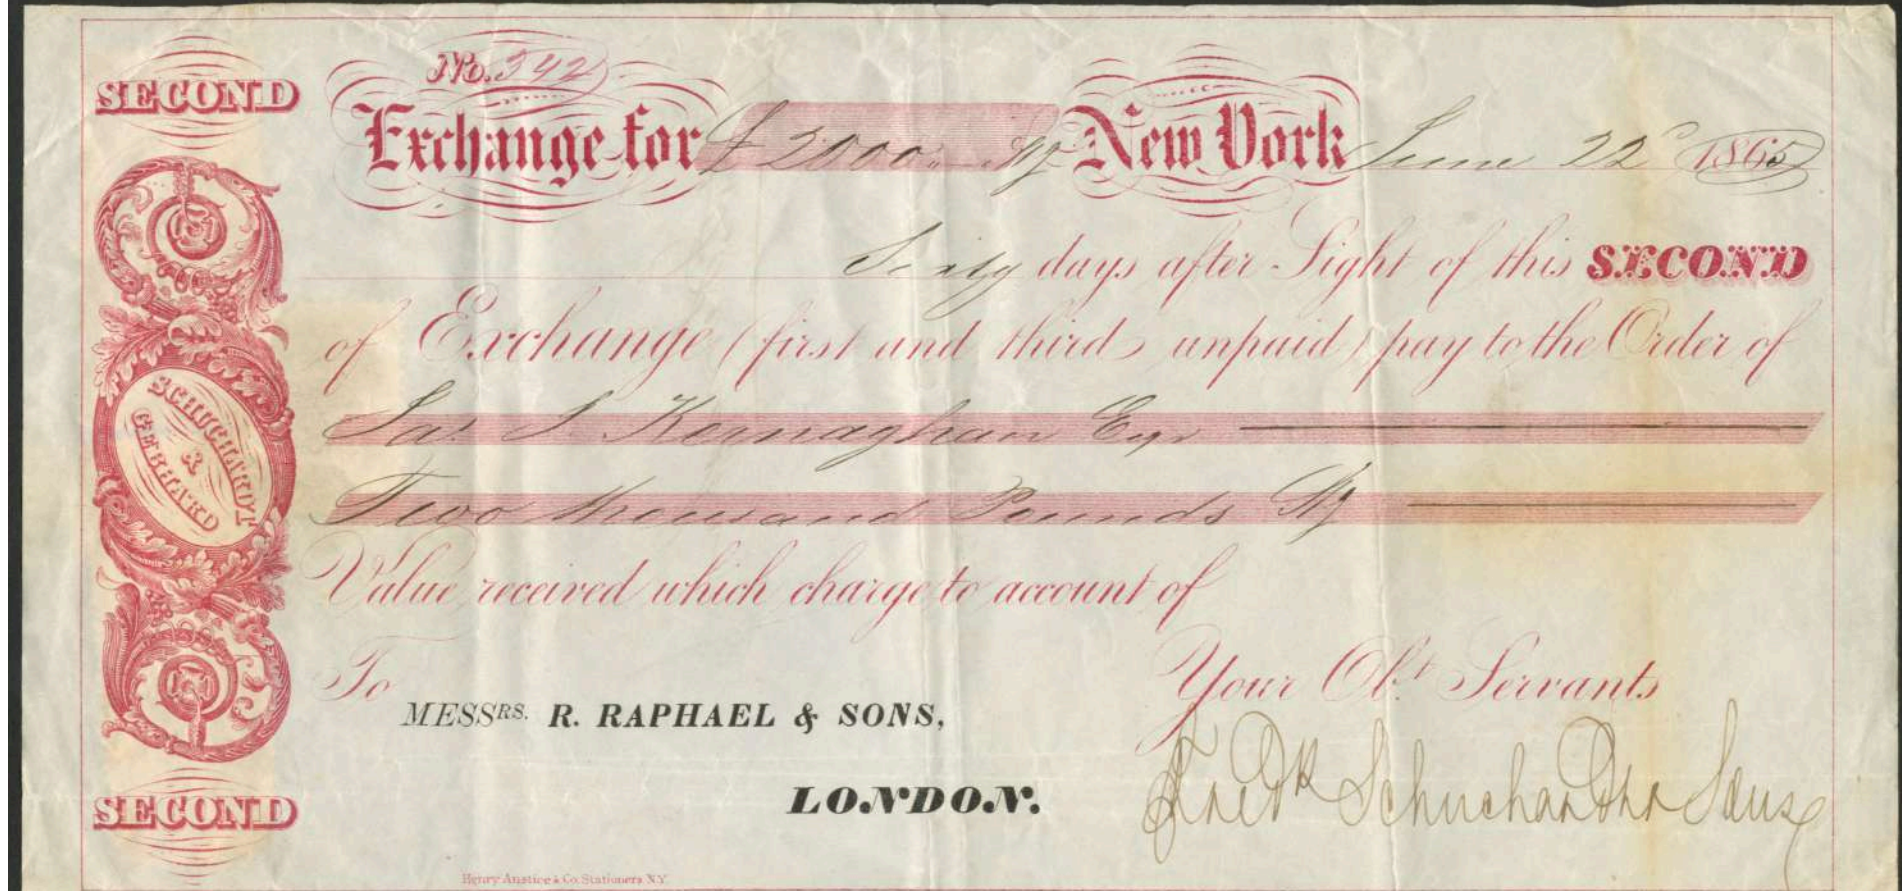 SECOND
No. 342
Exchange for £2000 Stg New York June 22d 1865
Sixty days after Sight of this SECOND
of Exchange (first and third unpaid) pay to the Order of
Jas. S. Kernaghan Esqr
Two thousand Pounds Stg
Value received which charge to account of
SCHUCHARDT
&
GEBHARD
To
MESSRS. R. RAPHAEL & SONS,
LONDON.
Your Obt. Servants
Fredk Schuchardt & Sons
SECOND
Henry Anstice & Co. Stationers N.Y.